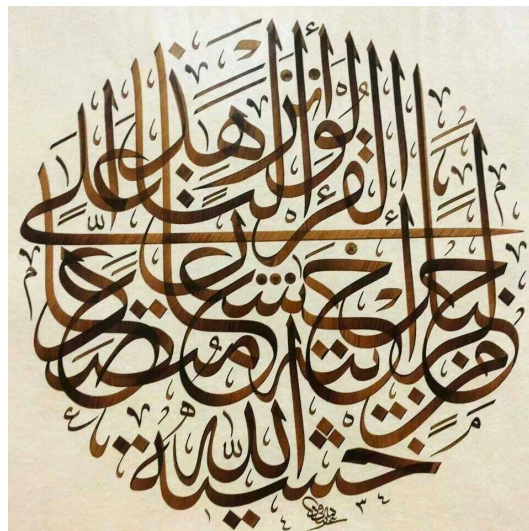 لو أنزلنا هذا القرآن على
جبل لرأيته خاشعا متصدعا من
خشية الله